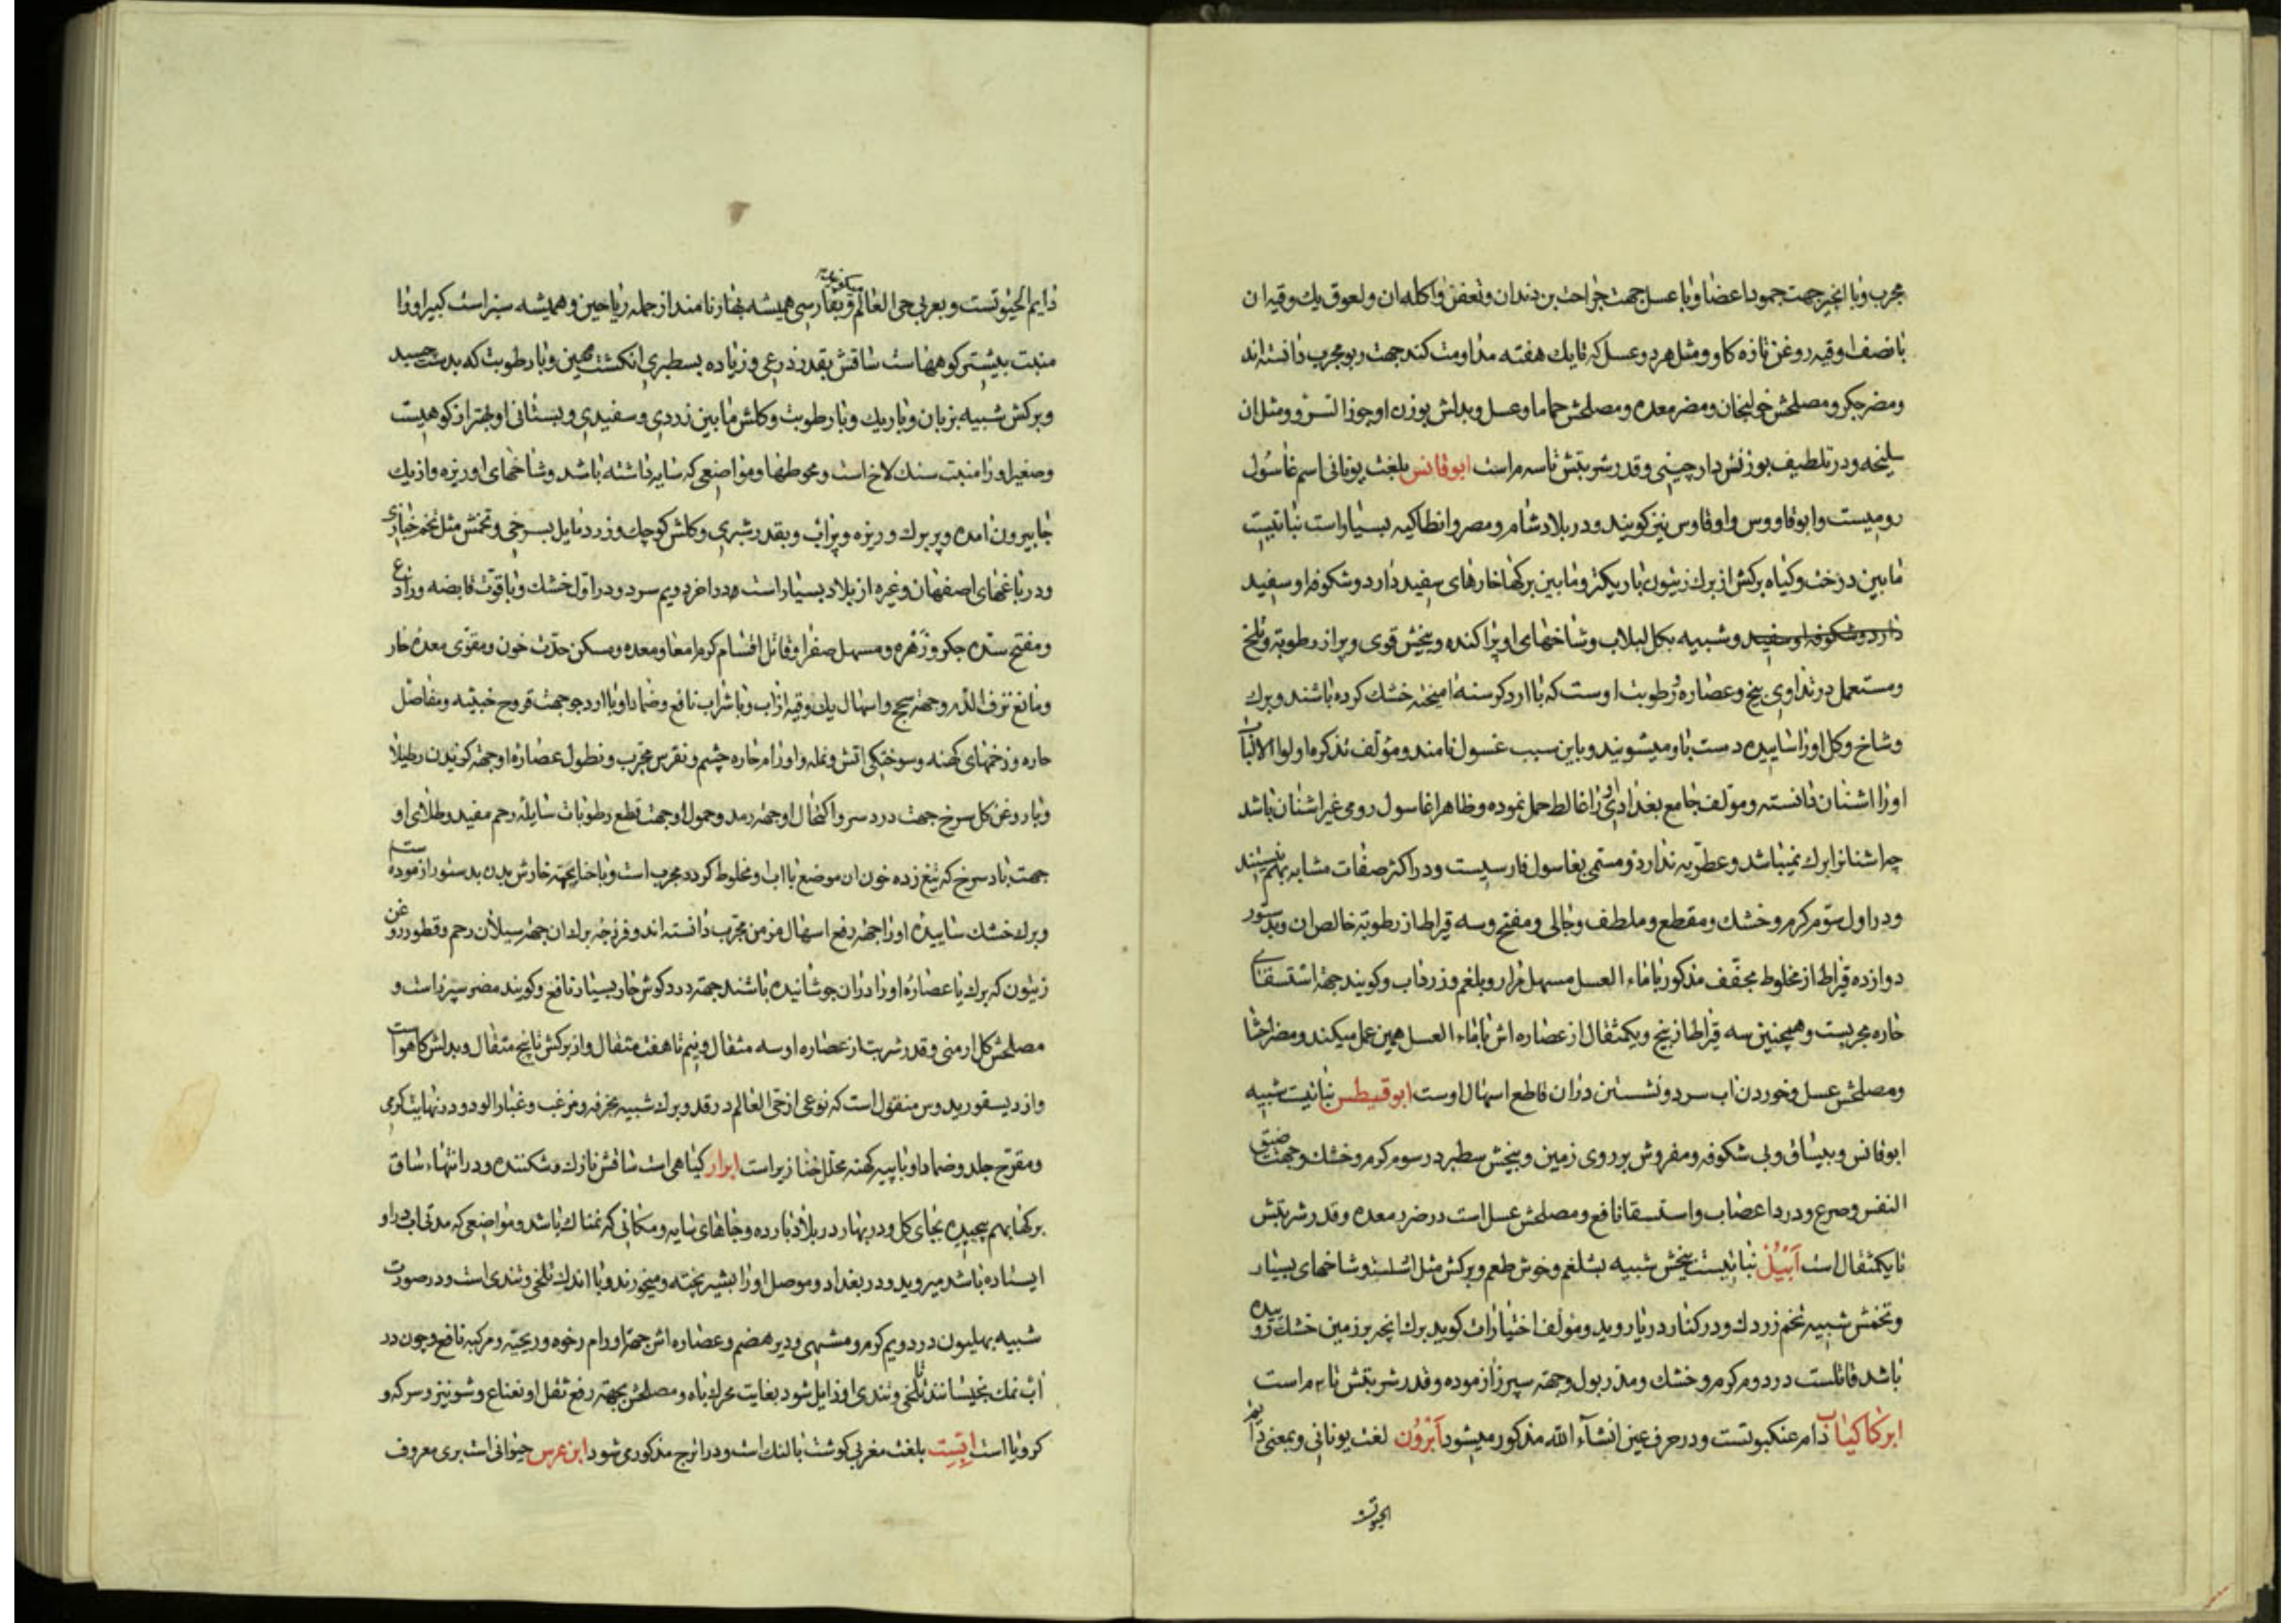 مجرب وبا انجیر جهت جمود اعضا وبا عسل جهت جراحت بن دندان وتعفن واکله ان ولعوق یک وقیه ان
با نصف اوقیه روغن تازه کاو ومثل هر دو عسل که تا یک هفته مداومت کنند جهت ربو مجرب دانسته اند
ومضر جکر ومصلحش خولنجان ومضر معده ومصلحش حماما وعسل وبدلش بوزن او جوز السرو ومثل ان
سلیخه ودر تلطیف بوزنش دارچینی وقدر شربتش تا سه مراست ابوفانس بلغت یونانی اسم غاسول
رومیست وابوفاووس واوفاوس نیز کویند ودر بلاد شام ومصر وانطاکیه بسیار است نباتیست
مابین درخت وکیاه برکش از برک زیتون باریکتر ومابین برکها خارهای سفید دارد وشکوفه او سفید
دارد وشکوفه او سفید وشبیه بکل لبلاب وشاخهای او پراکنده وبیخش قوی وپر از رطوبة وتلخ
ومستعمل در تداوی بیخ وعصاره ورطوبت اوست که با ارد کرسنه امیخته خشک کرده باشند وبرک
وشاخ وکل اورا ساییده دست باو میشویند وباین سبب غسول نامند ومؤلف تذکره اولوا الالباب
اورا اشنان دانسته ومؤلف جامع بغدادی اورا غالط حمل نموده وظاهرا غاسول رومی غیر اشنان باشد
چه اشنانرا برک نمیباشد وعطریه ندارد ومسمی بغاسول فارسیست ودر اکثر صفات مشابه بهم نیستند
ودر اول سوّم کرم وخشک ومقطع وملطف وجالی ومفتح وسه قیراط از رطوبة خالص ان وبدستور
دوازده قیراط از مخلوط مجفف مذکور با ماء العسل مسهل مرار وبلغم وزرداب وکویند جهة استسقای
حاره مجربست وهمچنین سه قیراط از بیخ ویکمثقال از عصاره اش با ماء العسل همین عمل میکند ومضر احشا
ومصلحش عسل وخوردن اب سرد ونشستن در ان قاطع اسهال اوست ابوقسطس نباتیت شبیه
ابوفانس وبیساق وبی شکوفه ومفروش بر روی زمین وبیخش سطبر در سوم کرم وخشک وجهت ضیق
النفس وصرع ودرد اعصاب واستسقا نافع ومصلحش عسل است در ضرر معده وقدر شربتش
تا یکمثقال است ابیل نباتیست بیخش شبیه بشلغم وخوش طعم وبرکش مثل وشاخهای بسیار
وتخمش شبیه بتخم زردک ودر کنار دریا روید ومؤلف اختیارات کوید برک انچه بر زمین خشک روییده
باشد قاتلست در دوم کرم وخشک ومدر بول وجهة سپرز ازموده وقدر شربتش تا مراست
ابر کاکیاب دام عنکبوتست ودر حرف عین انشآء الله مذکور میشود ابرون لغت یونانی وبمعنی دایم
الحیوتست
دایم الحیوتست وبعربی حی العالم وبفارسی همیشه بهار نامند از جمله ریاحین وهمیشه سبز است کبیر اورا
منبت بیشتر کوههاست ساقش بقدر ذرعی وزیاده بسطبری انکشت مهین وبا رطوبت که بدست چسبد
وبرکش شبیه بزبان وباریک وبا رطوبت وکلش مابین زردی وسفیدی وبستانی او بهتر از کوهیست
وصغیر اورا منبت سنک لاخ است ومحوطها ومواضعی که سایه داشته باشد وشاخهای او ریزه واز یک
جا بیرون امده وپر برک وریزه وپراب وبقدر شبری وکلش کوچک وزرد مایل بسرخی وتخمش مثل تخم خبازی
ودر باغهای اصفهان وغیره از بلاد بسیار است در اخر دویم سرد ودر اول خشک وبا قوّت قابضه ورادع
ومفتح سده جکر وزهره ومسهل صفرا وقاتل اقسام کرم امعا ومعده ومسکن حدّت خون ومقوّی معده حار
ومانع نزف الدّم وجهة سحج واسهال یک وقیه از اب وبا شراب نافع وضماد او با ارد جو جهت قروح خبیثه ومفاصل
حاره وزخمهای کهنه وسوختکی اتش ونمله واورام حاره چشم ونقرس مجرب ونطول عصاره او جهة کزیدن رطیلا
وبا روغن کل سرخ جهت درد سر واکتحال او جهة رمد وحمول او جهت قطع رطوبات سایله رحم مفید وطلای او
جهت باد سرخ که تیغ زده خون ان موضع با اب او مخلوط کردد مجرب است وبا حنا بجهة خارش بدن بدستور ازموده
وبرک خشک ساییده اورا جهة رفع اسهال مزمن مجرب دانسته اند وفرزجه برک ان جهة سیلان رحم وقطور روغن
زیتون که برک یا عصاره اورا در ان جوشانیده باشند جهة درد کوش حار بسیار نافع وکویند مضر سپرز است و
مصلحش کل ارمنی وقدر شربت از عصاره او سه مثقال ونیم تا هفت مثقال واز برکش تا پنج مثقال وبدلش کاهو است
واز دیسقوریدوس منقول است که نوعی از حی العالم در قد وبرک شبیه بخرفه ومزغب وغبار الود ودر نهایت کرمی
ومقرّح جلد وضماد او با پیه کهنه محلل خنازیر است ابرار کیاهی است ساقش نازک وشکننده ودر انتهاء ساق
برکها بهم پیچیده بجای کل ودر بهار در بلاد بارده وجاهای سایه ومکانی که نمناک باشد ومواضعی که مدتی اب در او
ایستاده باشد میروید ودر بغداد وموصل اورا بشیر پخته ومیخورند وبا اندک تلخی وتندی است ودر صورت
شبیه بهلیون در دویم کرم ومشهی ودیر هضم وعصاره اش جهة اورام رخوه وریحیه ومرکبه نافع وچون در
اب نمک بخیسانند تا تلخی وتندی او زایل شود بغایت محرک باه ومصلحش بجهة رفع ثقل او نعناع وشونیز وسرکه و
کرویا است ابست بلغت مغربی کوشت بالنک است ودر اترج مذکور می شود ابن عرس حیوانی است بری معروف